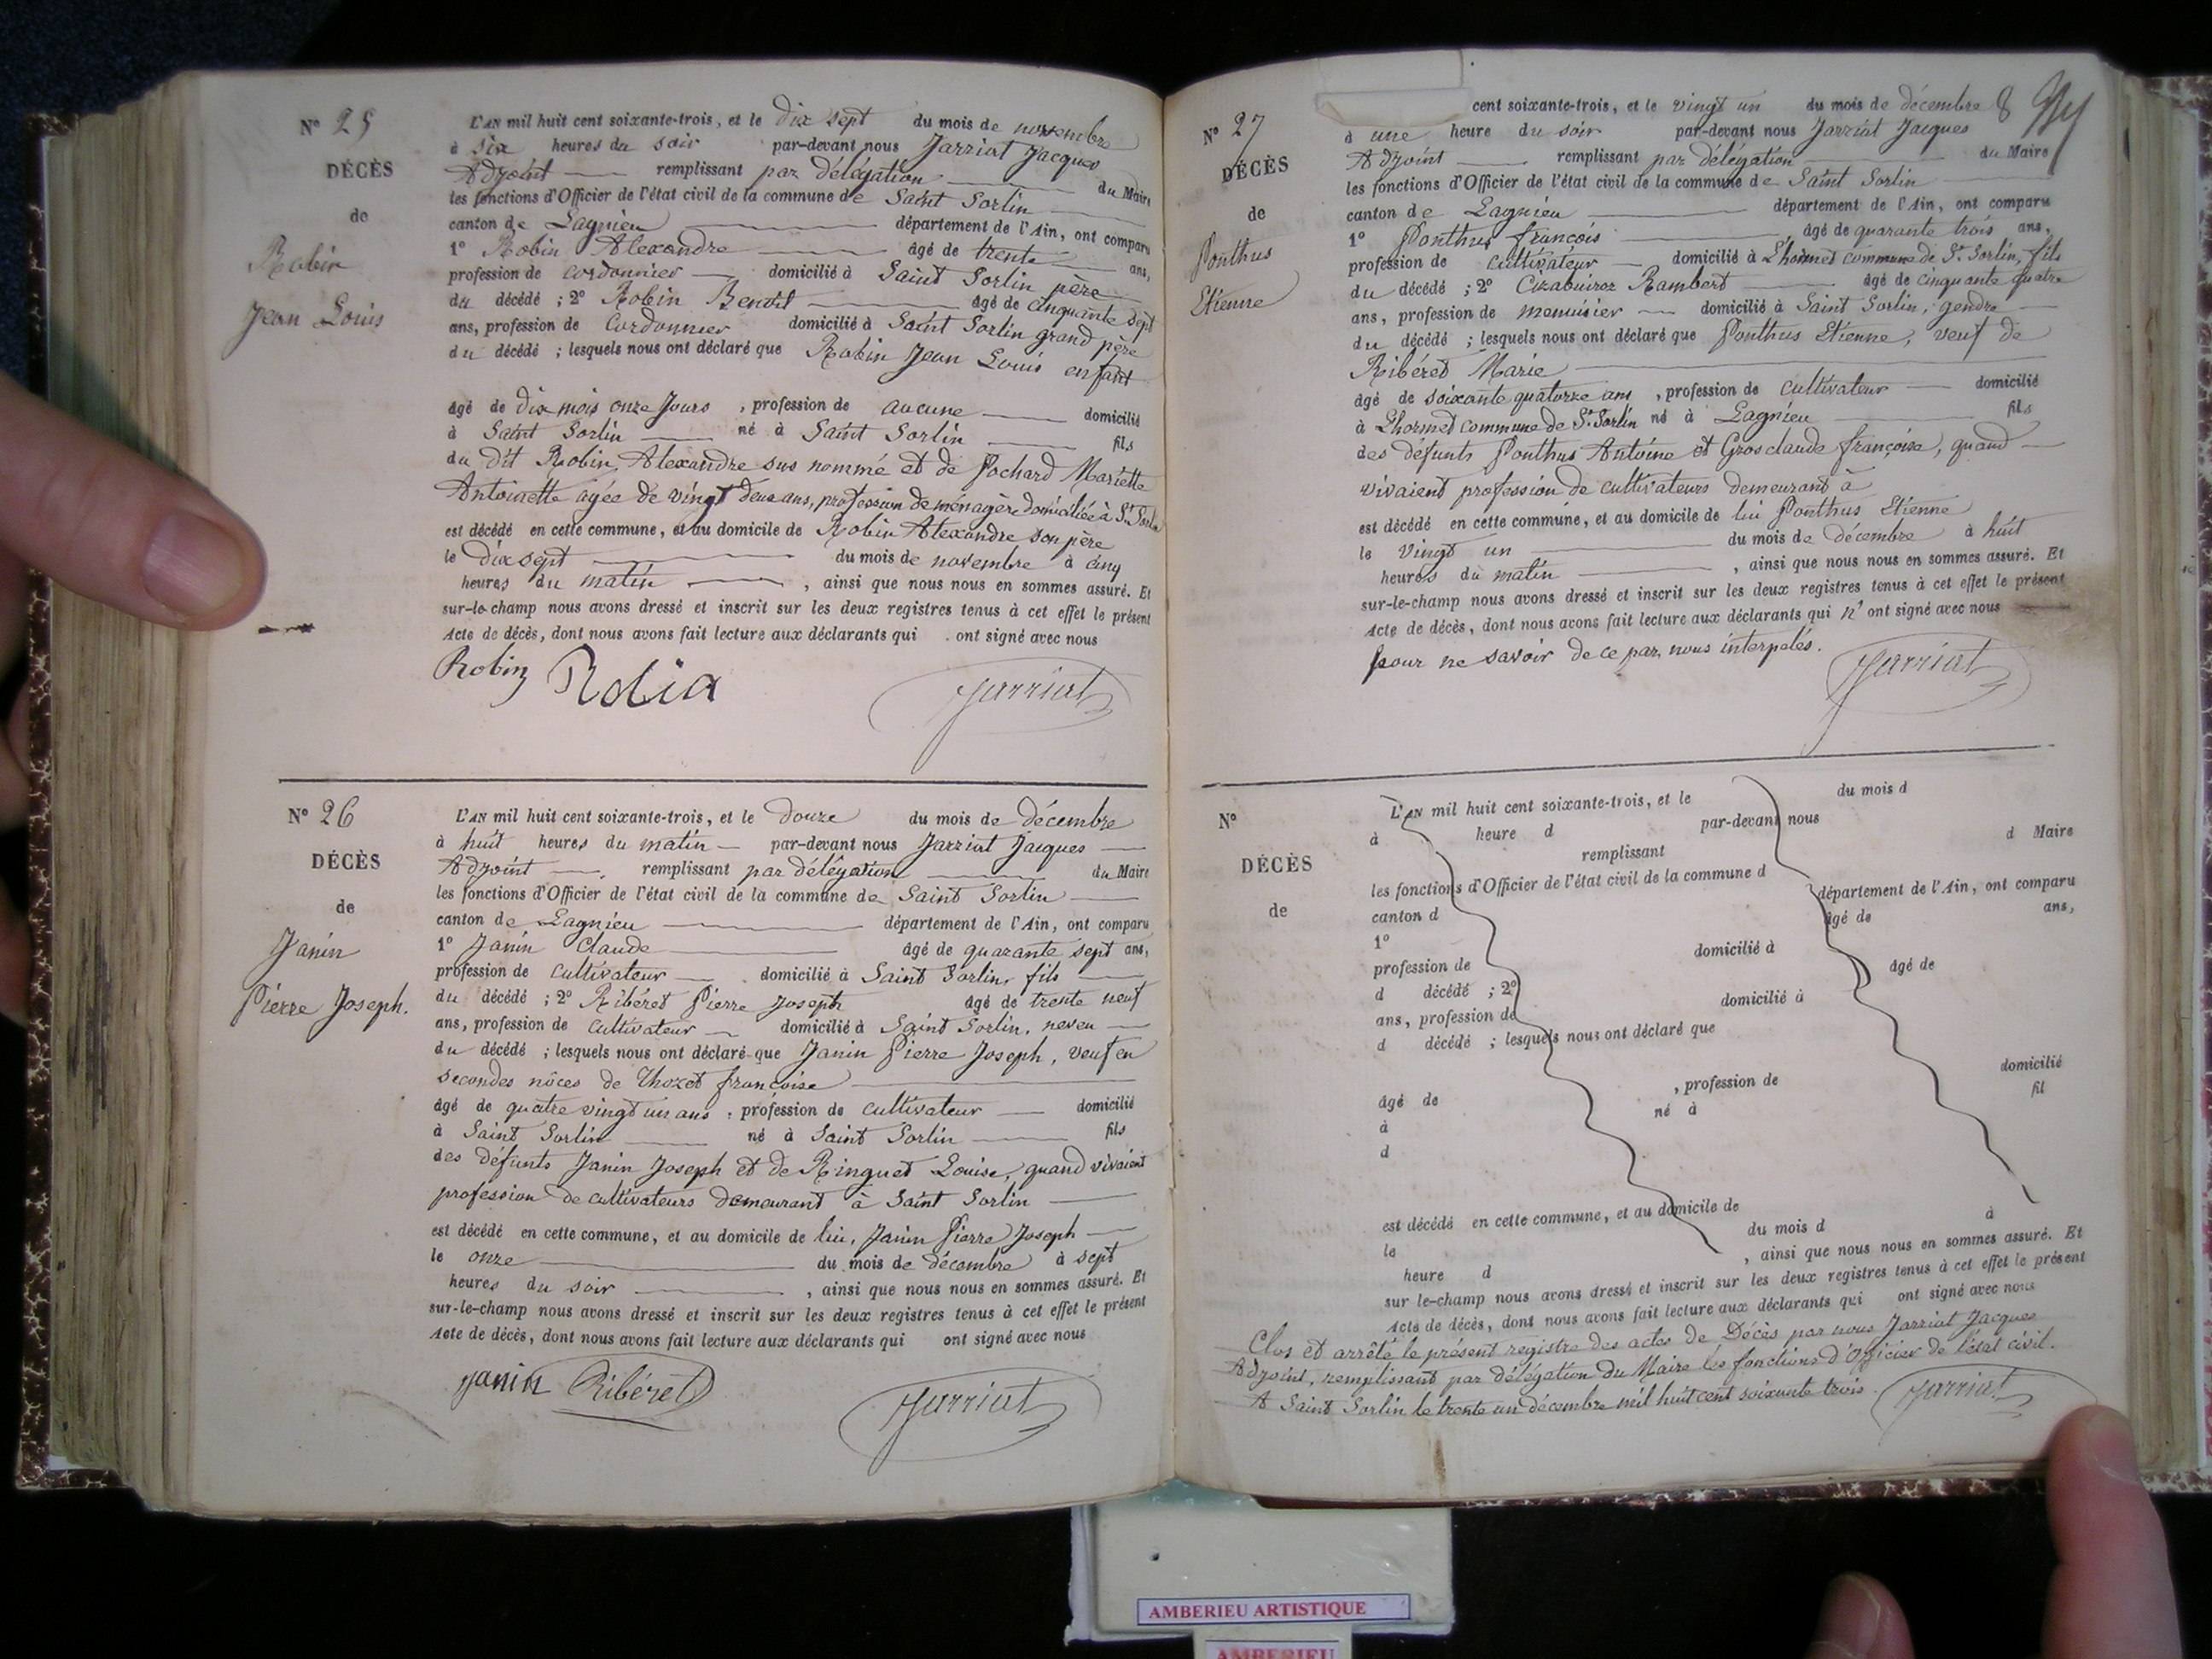 N° 25
DÉCÈS
de
Robin
Jean Louis
L'AN mil huit cent soixante-trois, et le dix sept du mois de novembre
à six heures du soir par-devant nous Jarriat Jacques
Adjoint remplissant par délégation du Maire
les fonctions d'Officier de l'état civil de la commune de Saint Sorlin
canton de Lagnieu département de l'Ain, ont comparu
1° Robin Alexandre âgé de trente ans,
profession de cordonnier domicilié à Saint Sorlin père
du décédé ; 2° Robin Benoit âgé de cinquante sept
ans, profession de Cordonnier domicilié à Saint Sorlin grand père
du décédé ; lesquels nous ont déclaré que Robin Jean Louis enfant
âgé de dix mois onze jours , profession de aucune domicilié
à Saint Sorlin né à Saint Sorlin fils
du dit Robin Alexandre sus nommé et de Pochard Mariette
Antoinette âgée de vingt deux ans, profession de ménagère domiciliée à St Sorlin
est décédé en cette commune, et au domicile de Robin Alexandre son père
le dix sept du mois de novembre à cinq
heures du matin , ainsi que nous nous en sommes assuré. Et
sur-le-champ nous avons dressé et inscrit sur les deux registres tenus à cet effet le présent
Acte de décès, dont nous avons fait lecture aux déclarants qui ont signé avec nous
Robin Robin Jarriat
N° 26
DÉCÈS
de
Janin
Pierre Joseph.
L'AN mil huit cent soixante-trois, et le douze du mois de décembre
à huit heures du matin par-devant nous Jarriat Jacques
Adjoint remplissant par délégation du Maire
les fonctions d'Officier de l'état civil de la commune de Saint Sorlin
canton de Lagnieu département de l'Ain, ont comparu
1° Janin Claude âgé de quarante sept ans,
profession de cultivateur domicilié à Saint Sorlin, fils
du décédé ; 2° Ribéret Pierre Joseph âgé de trente neuf
ans, profession de cultivateur domicilié à Saint Sorlin, neveu
du décédé ; lesquels nous ont déclaré que Janin Pierre Joseph, veuf en
secondes nôces de Thozet françoise
âgé de quatre vingt un ans , profession de cultivateur domicilié
à Saint Sorlin né à Saint Sorlin fils
des défunts Janin Joseph et de Ringuet Louise, quand vivaient
profession de cultivateurs demeurant à Saint Sorlin
est décédé en cette commune, et au domicile de lui, Janin Pierre Joseph
le onze du mois de décembre à sept
heures du soir , ainsi que nous nous en sommes assuré. Et
sur-le-champ nous avons dressé et inscrit sur les deux registres tenus à cet effet le présent
Acte de décès, dont nous avons fait lecture aux déclarants qui ont signé avec nous
Janin Ribéret Jarriat
8
N° 27
DÉCÈS
de
Ponthus
Etienne
cent soixante-trois, et le vingt un du mois de décembre
à une heure du soir par-devant nous Jarriat Jacques
Adjoint remplissant par délégation du Maire
les fonctions d'Officier de l'état civil de la commune de Saint Sorlin
canton de Lagnieu département de l'Ain, ont comparu
1° Ponthus françois âgé de quarante trois ans,
profession de cultivateur domicilié à Lhormet commune de St Sorlin, fils
du décédé ; 2° Rambert âgé de cinquante quatre
ans, profession de menuisier domicilié à Saint Sorlin, gendre
du décédé ; lesquels nous ont déclaré que Ponthus Etienne, veuf de
Ribéret Marie
âgé de soixante quatorze ans , profession de cultivateur domicilié
à Lhormet commune de St Sorlin né à Lagnieu fils
des défunts Ponthus Antoine et Grosclaude françoise, quand
vivaient profession de cultivateurs demeurant à
est décédé en cette commune, et au domicile de lui Ponthus Etienne
le vingt un du mois de décembre à huit
heures du matin , ainsi que nous nous en sommes assuré. Et
sur-le-champ nous avons dressé et inscrit sur les deux registres tenus à cet effet le présent
Acte de décès, dont nous avons fait lecture aux déclarants qui n'ont signé avec nous
pour ne savoir de ce par nous interpelés.
Jarriat
N°
DÉCÈS
de
L'AN mil huit cent soixante-trois, et le du mois d
à heure d par-devant nous
remplissant d Maire
les fonctions d'Officier de l'état civil de la commune d
canton d département de l'Ain, ont comparu
1° âgé de ans,
profession de domicilié à
d décédé ; 2° âgé de
ans, profession de domicilié à
d décédé ; lesquels nous ont déclaré que
âgé de , profession de domicilié
à né à fil
d
est décédé en cette commune, et au domicile de
le du mois d à
heure d , ainsi que nous nous en sommes assuré. Et
sur le-champ nous avons dressé et inscrit sur les deux registres tenus à cet effet le présent
Acte de décès, dont nous avons fait lecture aux déclarants qui ont signé avec nous
Clos et arrêté le présent registre des actes de Décès par nous Jarriat Jacques
Adjoint, remplissant par délégation du Maire les fonctions d'Officier de l'état civil.
A Saint Sorlin le trente un décembre mil huit cent soixante trois. Jarriat
AMBERIEU ARTISTIQUE
AMBERIEU